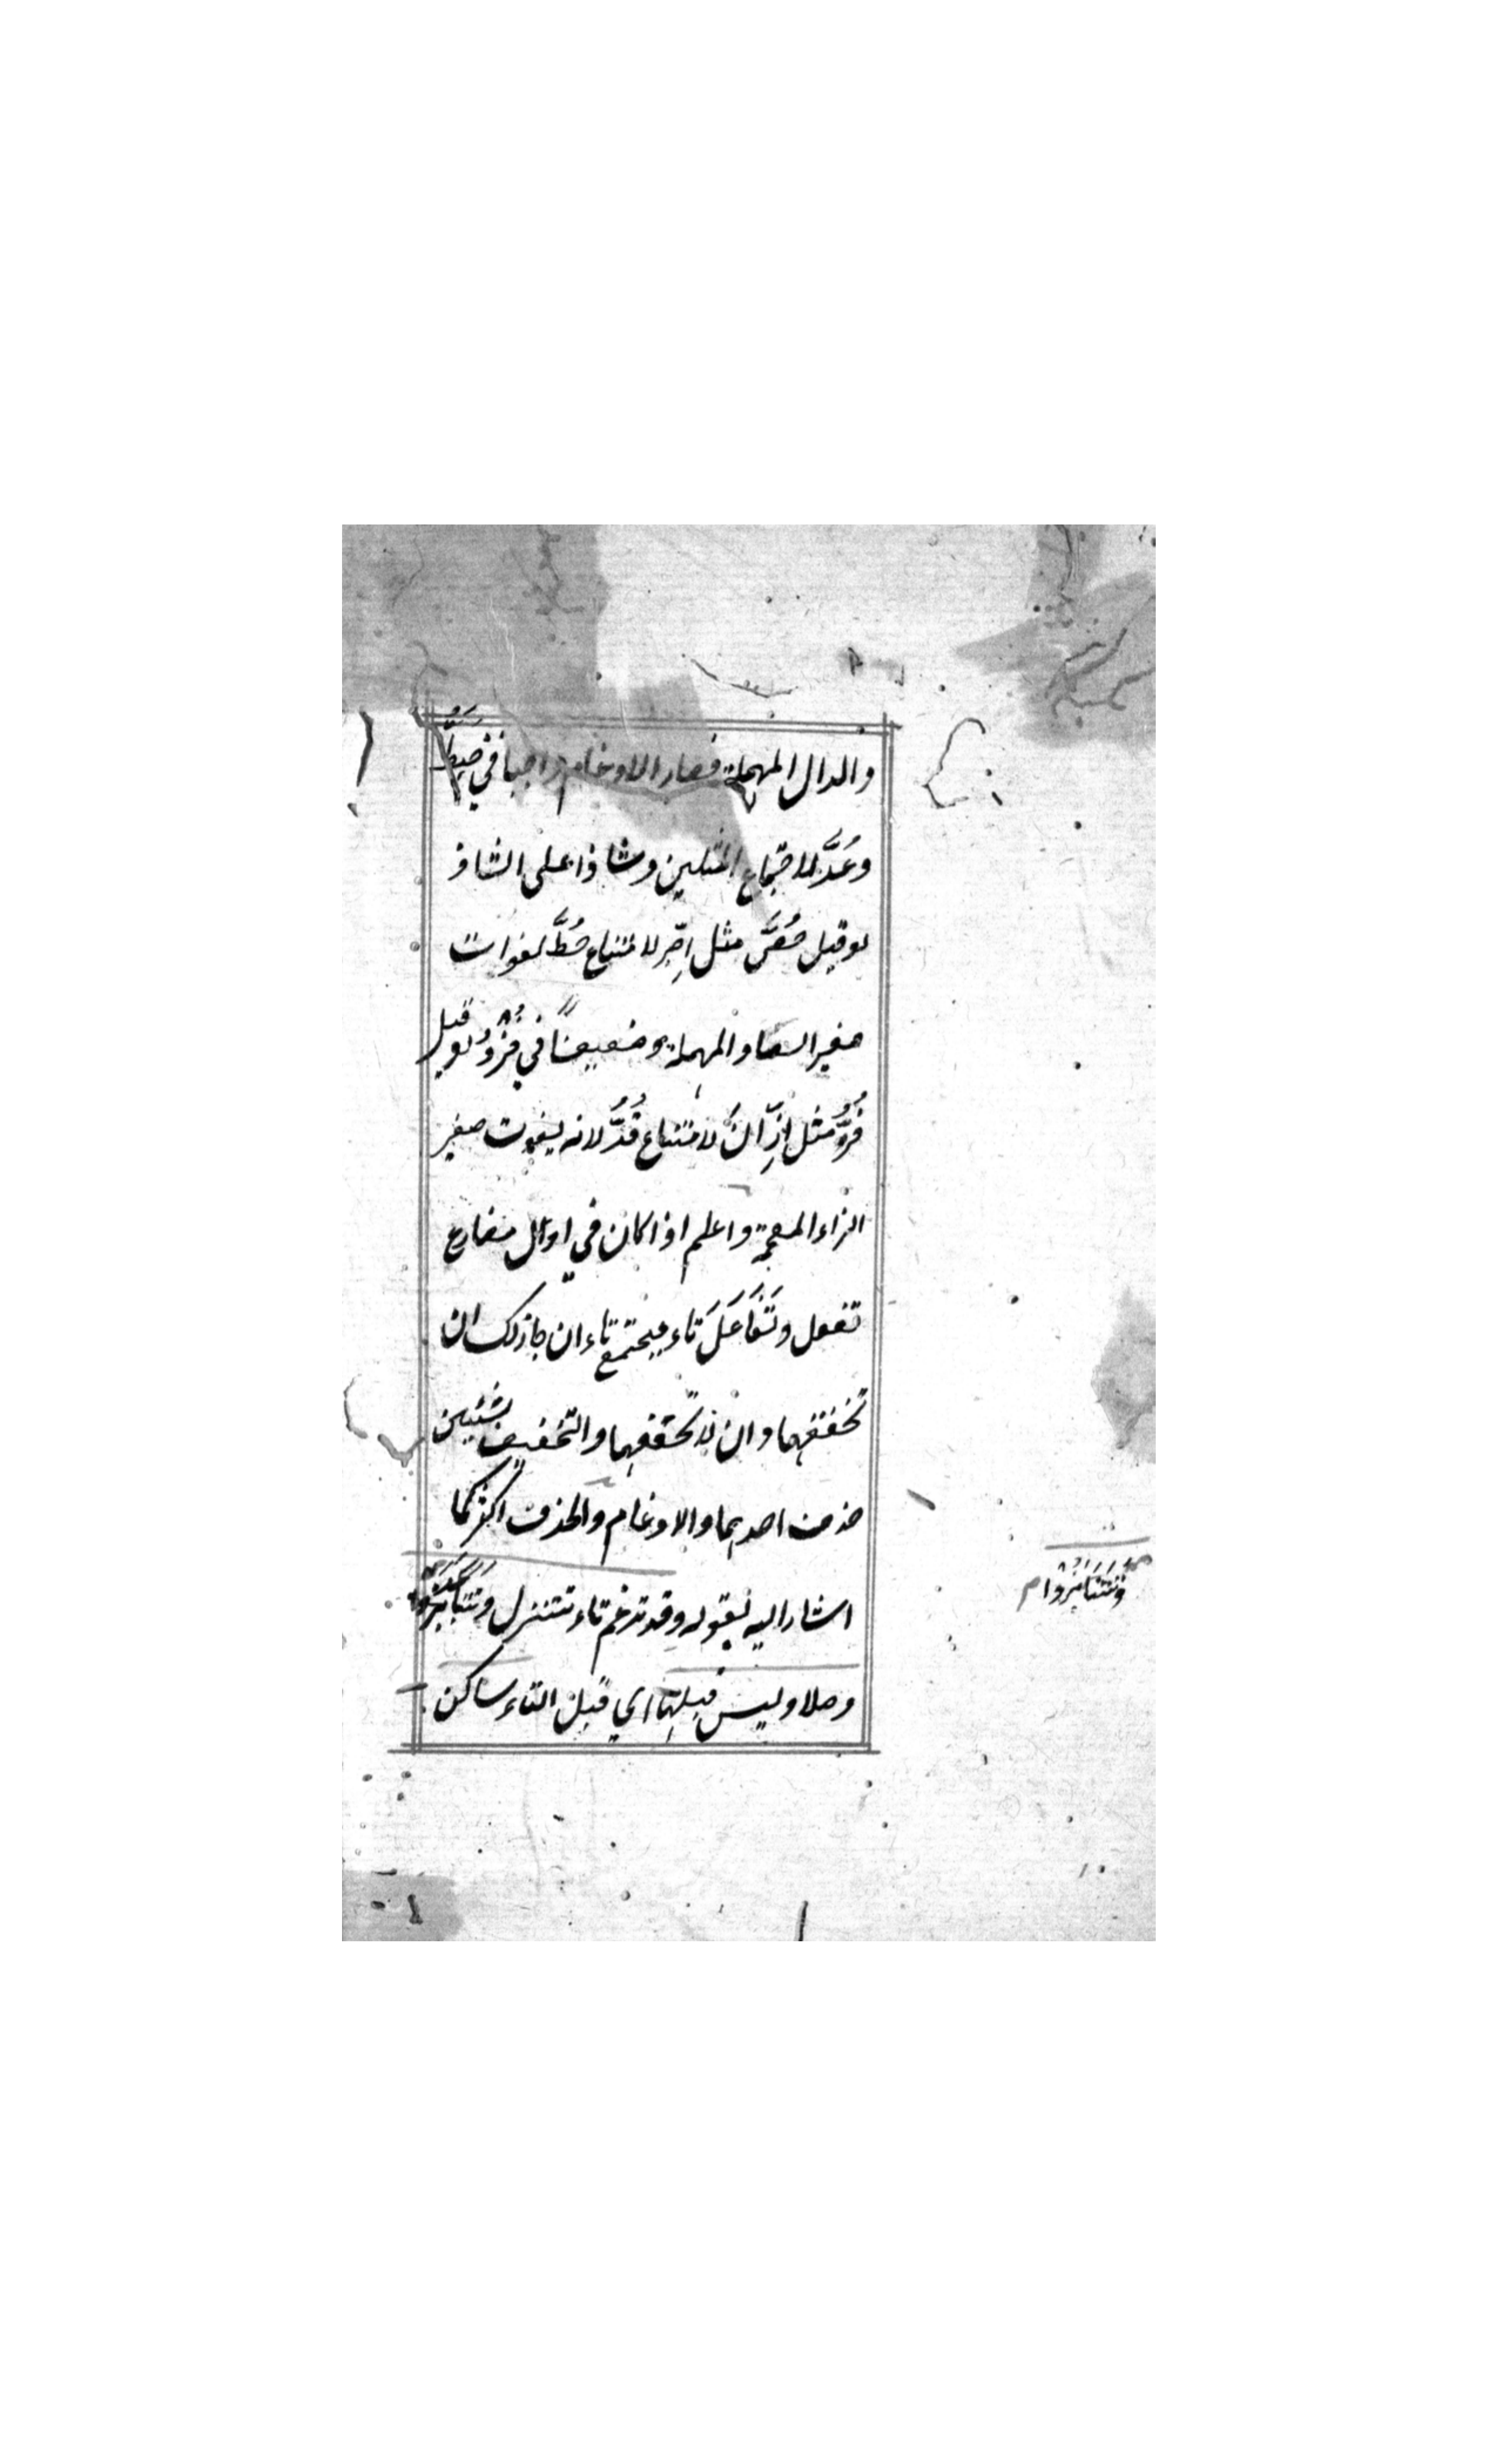 والدال المهملة فصار الادغام واجبا في خبطّ
وعُدَّ لاجتماع المثلين وشاذا على الشاذ
لو قيل حُصَّ مثل اِصّبر لامتناع حُطَّ لفوات
صفير الصاد المهملة وضعيفاً في فُزْدُ لو قيل
فُزُّ مثل ازّان لامتناع فُدُّ لانه يفوت صفير
الزاء المعجمة واعلم اذا كان في اوائل مضارع
تفعل وتَفَاعَلَ تاء فيجتمع تاءان جاز لك ان
تخففهما وان لا تخففهما والتخفيف بشيئين
حذف احديهما والادغام والحذف اكثر كما
اشار اليه بقوله وقد تدغم تاء تتنزل وتتنابزوا
وصلا وليس قبلها اي قبل التاء ساكن
وتَتَنَابَزُوا م